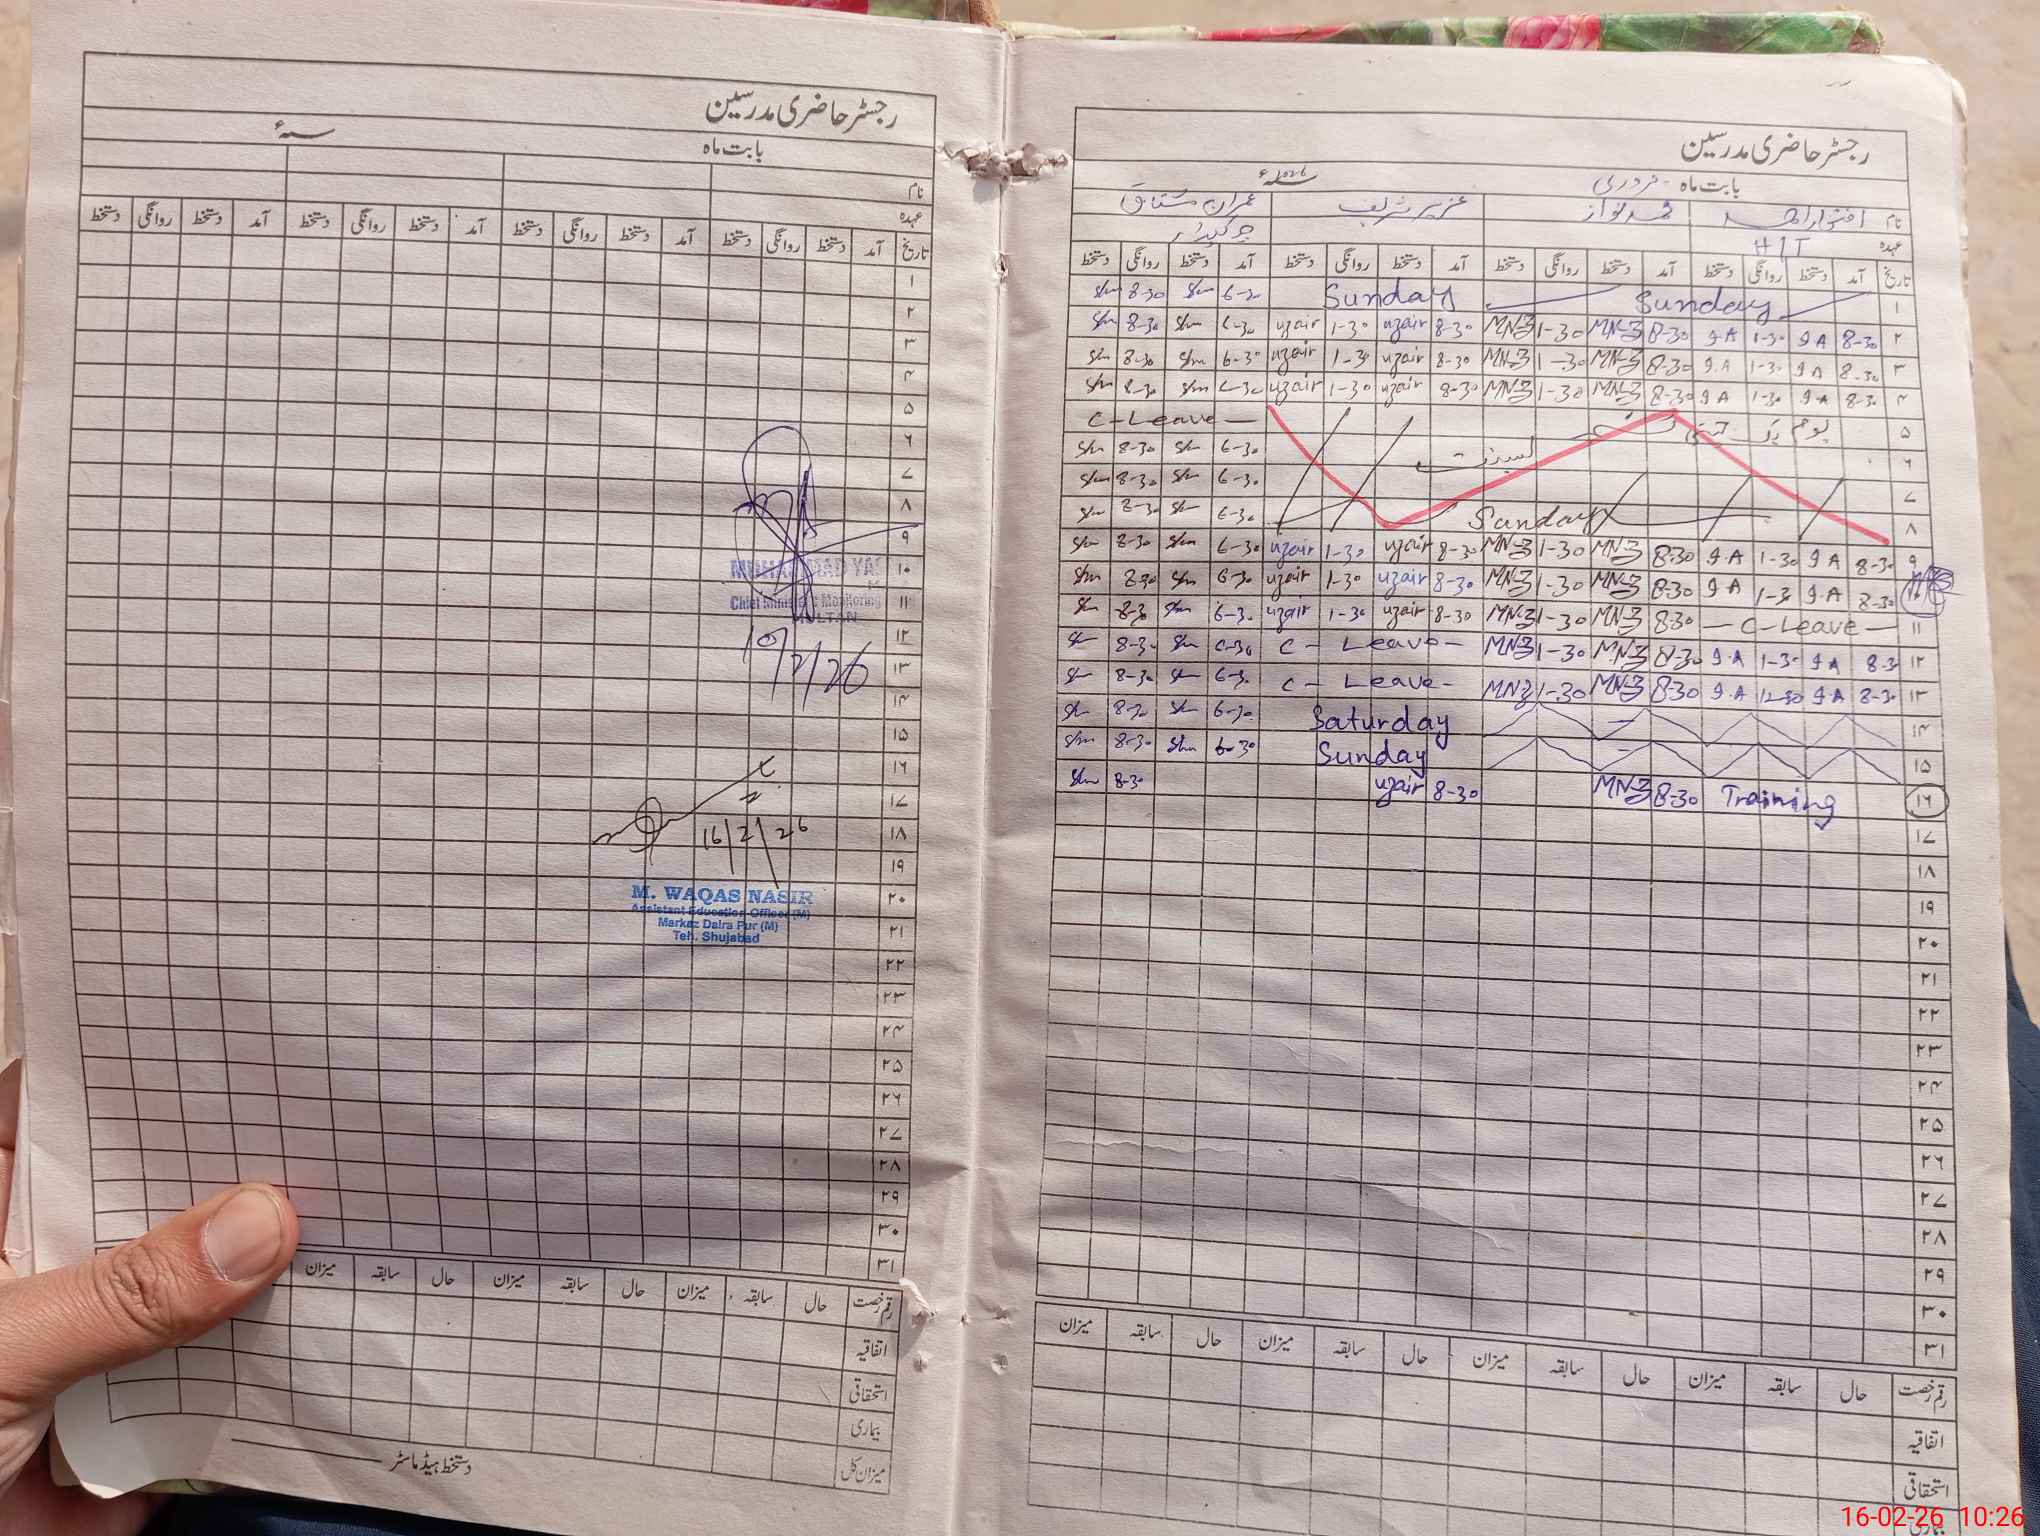 رجسٹر حاضری مدرسین
بابت ماہ سنہ ء
نام
عہدہ
تاریخ آمد دستخط روانگی دستخط آمد دستخط روانگی دستخط آمد دستخط روانگی دستخط آمد دستخط روانگی دستخط
۱
۲
۳
۴
۵
۶
۷
۸
۹
۱۰
۱۱
۱۲
۱۳
۱۴
۱۵
۱۶
۱۷
۱۸
۱۹
۲۰
۲۱
۲۲
۲۳
۲۴
۲۵
۲۶
۲۷
۲۸
۲۹
۳۰
۳۱
MUHAMMAD YAS
Chief Minister Monitoring
MULTAN
10/2/26
16/2/26
M. WAQAS NASIR
Assistant Education Officer (M)
Markaz Daira Pur (M)
Teh. Shujabad
رقم رخصت حال سابقہ میزان حال سابقہ میزان حال سابقہ میزان
اتفاقیہ
استحقاقی
بیماری
میزان کل
دستخط ہیڈ ماسٹر
رجسٹر حاضری مدرسین
بابت ماہ - فروری سنہ 2026ء
نام محمد نواز عزیر شریف عمران مشتاق
عہدہ چوکیدار
تاریخ آمد دستخط روانگی دستخط آمد دستخط روانگی دستخط آمد دستخط روانگی دستخط آمد دستخط روانگی دستخط
۱ Sunday Sunday 6-30 8-30
۲ 8-30 9A 1-30 9-A 8-30 MN 1-30 MN 8-30 uzair 1-30 uzair 6-30 8-30
۳ 8-30 9A 1-30 9.A 8-30 MN 1-30 MN 8-30 uzair 1-30 uzair 6-30 8-30
۴ 8-30 9A 1-30 9A 8-30 MN 1-30 MN 8-30 uzair 1-30 uzair 6-30 8-30
۵ یوم C-Leave
۶ 6-30 8-30
۷ 6-30 8-30
۸ Sunday 6-30 8-30
۹ 8-30 9A 1-30 9-A 8-30 MN 1-30 MN 8-30 uzair 1-30 uzair 6-30 8-30
۱۰ 8-30 9.A 1-3 9A 8-30 MN 1-30 MN 8-30 uzair 1-30 uzair 6-30 8-30
۱۱ C-Leave 8-30 MN 1-30 MN 8-30 uzair 1-30 uzair 6-30 8-30
۱۲ 8-3 9A 1-30 9.A 8-30 MN 1-30 MN C-Leave 6-30 8-30
۱۳ 8-30 9.A 12-30 9-A 8-30 MN 1-30 MN C-Leave 6-30 8-30
۱۴ Saturday 6-30 8-30
۱۵ Sunday 6-30 8-30
۱۶ Training 8-30 MN 8-30 uzair 8-30
۱۷
۱۸
۱۹
۲۰
۲۱
۲۲
۲۳
۲۴
۲۵
۲۶
۲۷
۲۸
۲۹
۳۰
۳۱
رقم رخصت حال سابقہ میزان حال سابقہ میزان حال سابقہ میزان حال سابقہ میزان
اتفاقیہ
استحقاقی
16-02-26 10:26